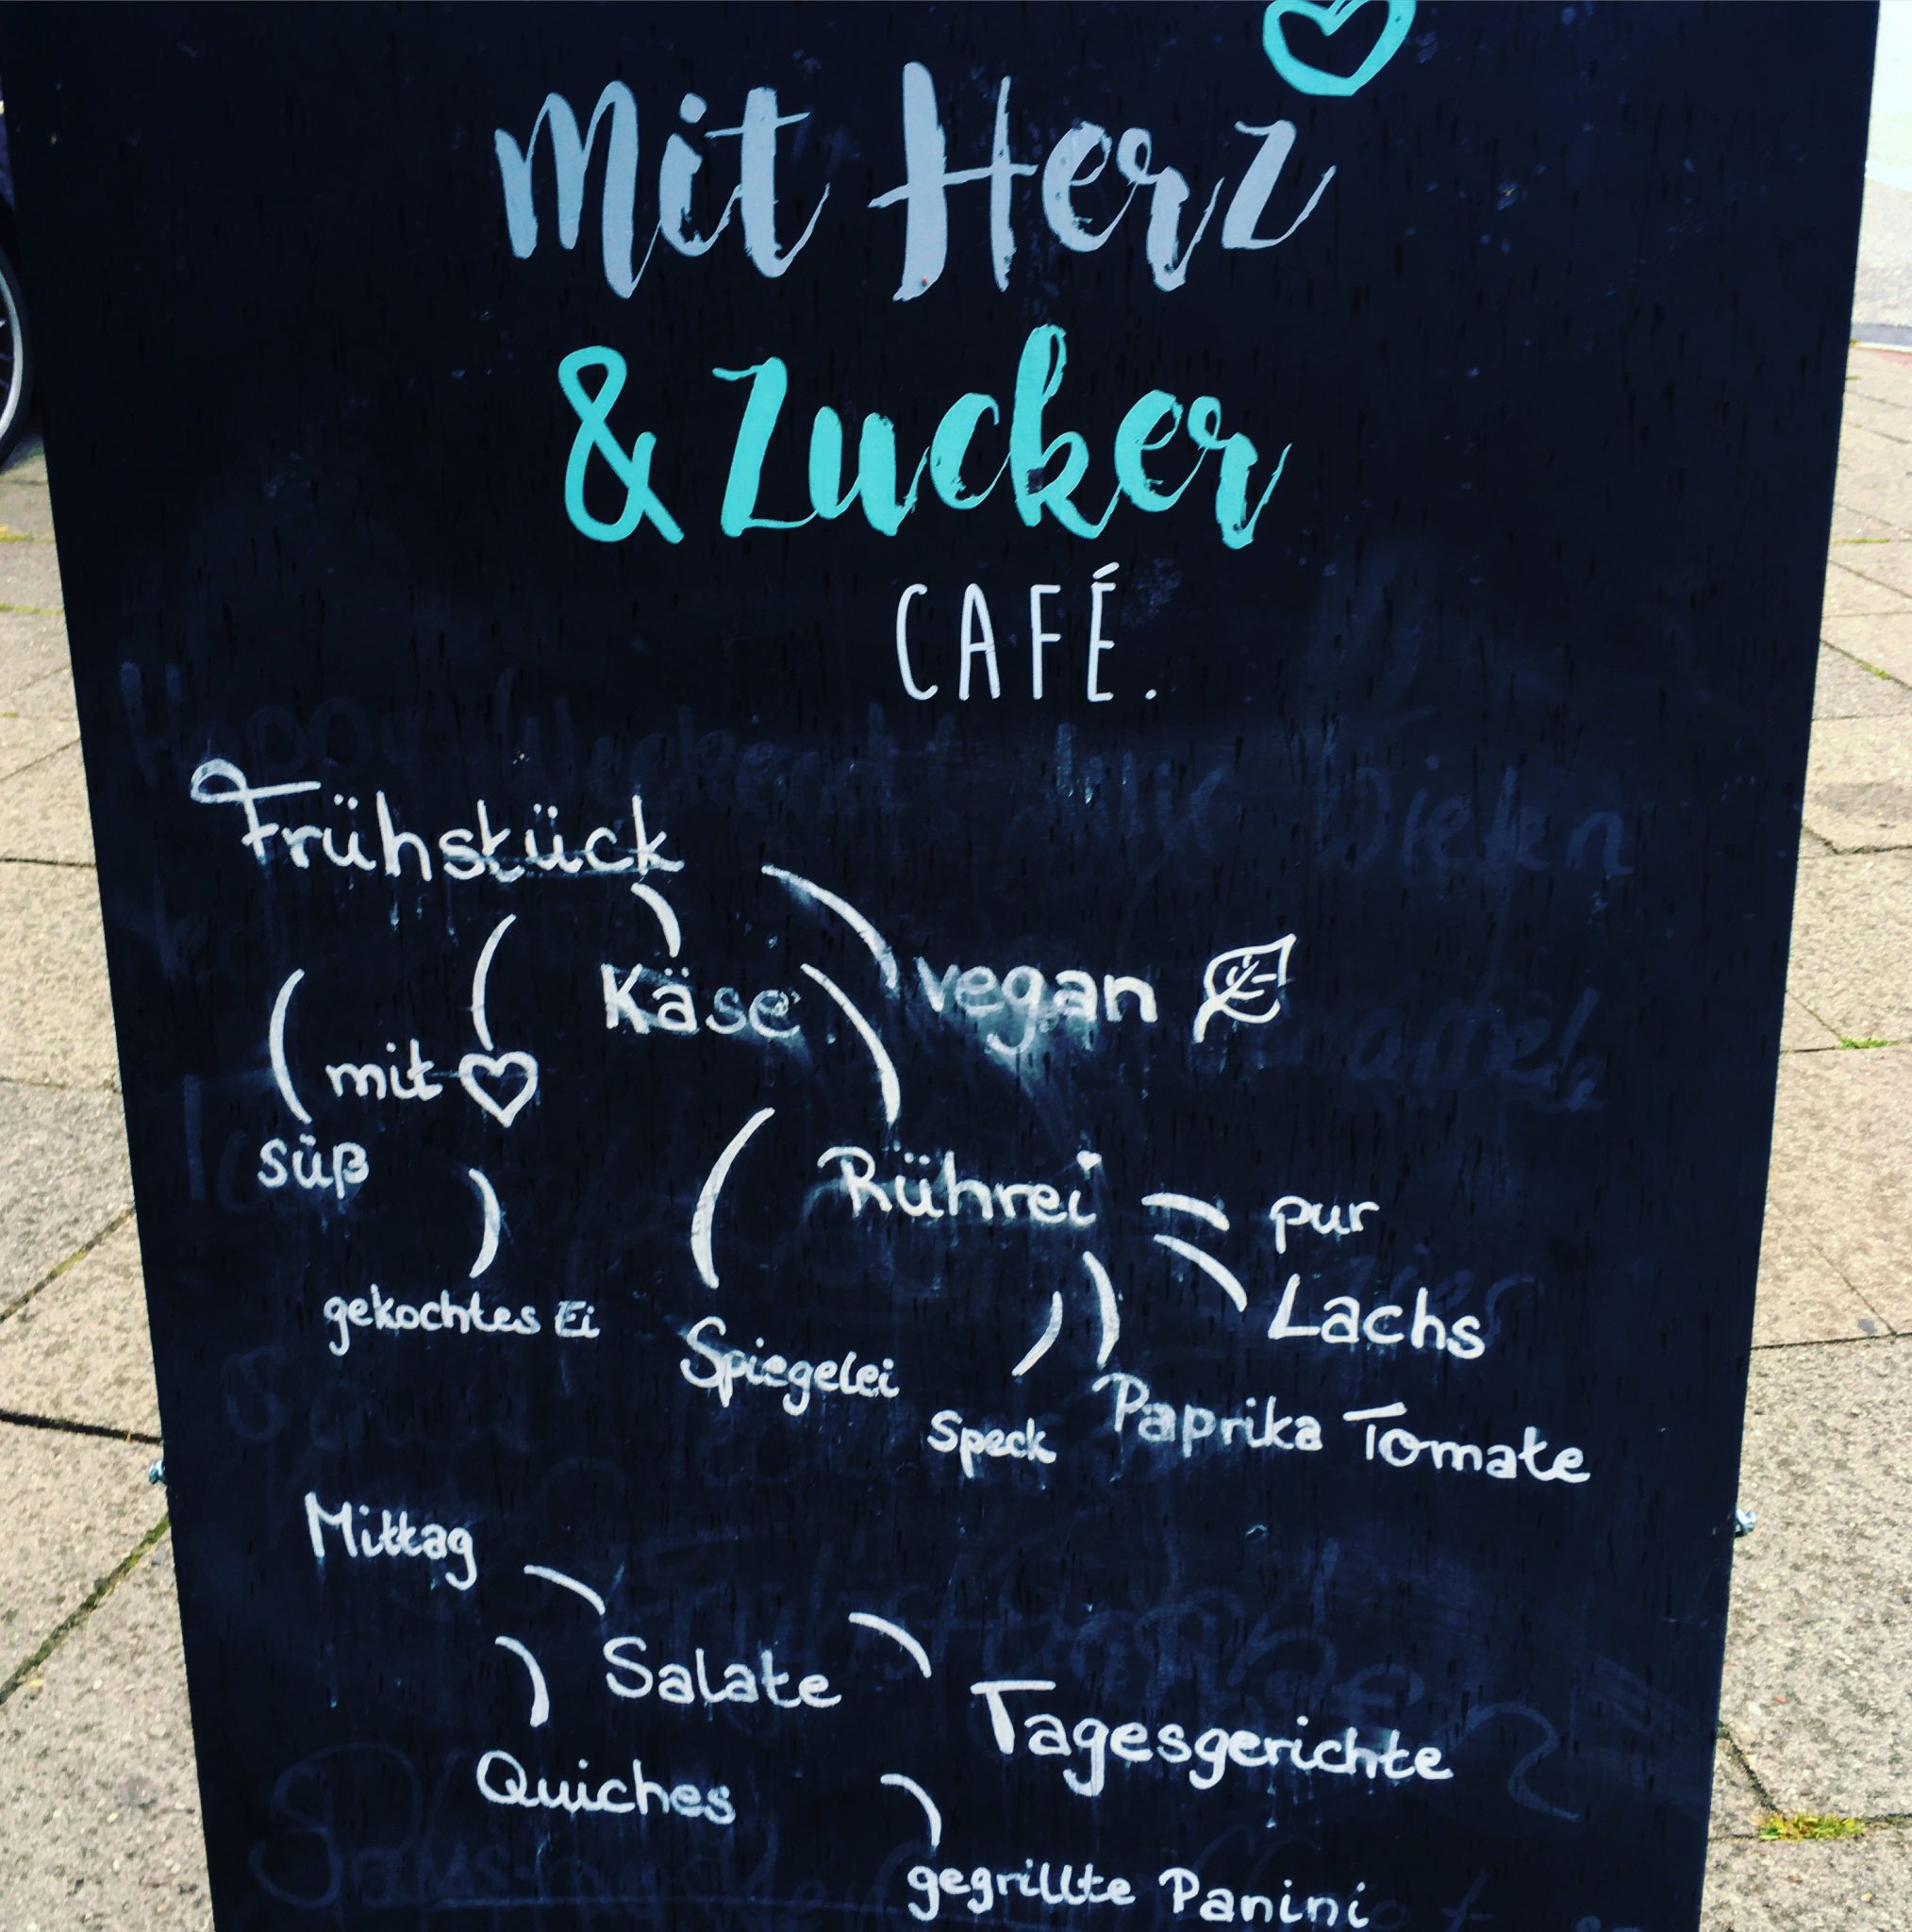 Mit Herz
& Zucker
CAFÉ.
Frühstück
Käse vegan
mit
süß
Rührei pur
gekochtes Ei Lachs
Spiegelei
Speck Paprika Tomate
Mittag
Salate
Tagesgerichte
Quiches
gegrillte Panini